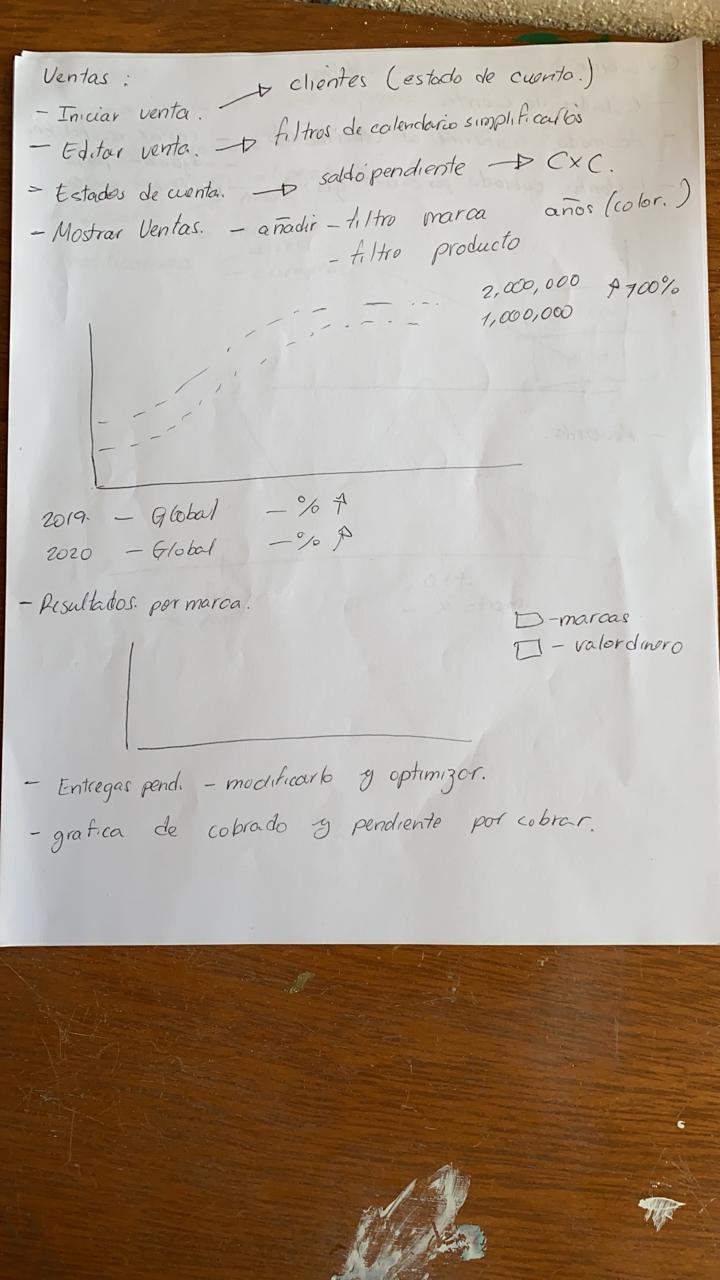 Ventas :
- Iniciar venta. → clientes (estado de cuenta.)
- Editar venta. → filtros de calendario simplificarlos
- Estados de cuenta. → saldo pendiente → CxC.
- Mostrar Ventas. - añadir - filtro marca años (color.)
- filtro producto
2,000,000 ↑ 100%
1,000,000
2019. - Global - % ↑
2020 - Global - % ↑
- Resultados. por marca.
- marcas
- valor dinero
- Entregas pend. - modificarlo y optimizar.
- grafica de cobrado y pendiente por cobrar.